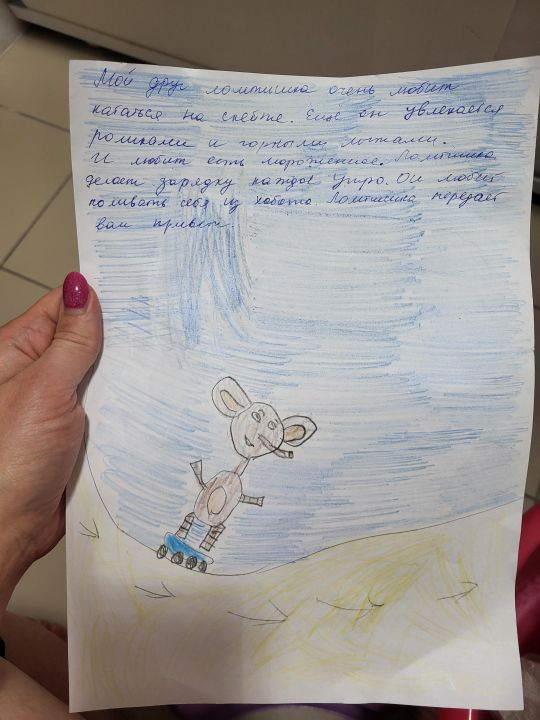 Мой друг ломтишка очень любит
кататься на скейте. Ещё он увлекается
роликами и горными лыжами.
И любит есть мороженное. Ломтишка
делает зарядку каждое Утро. Он любит
поливать себя из хобота Ломтишка передаёт
вам привет.